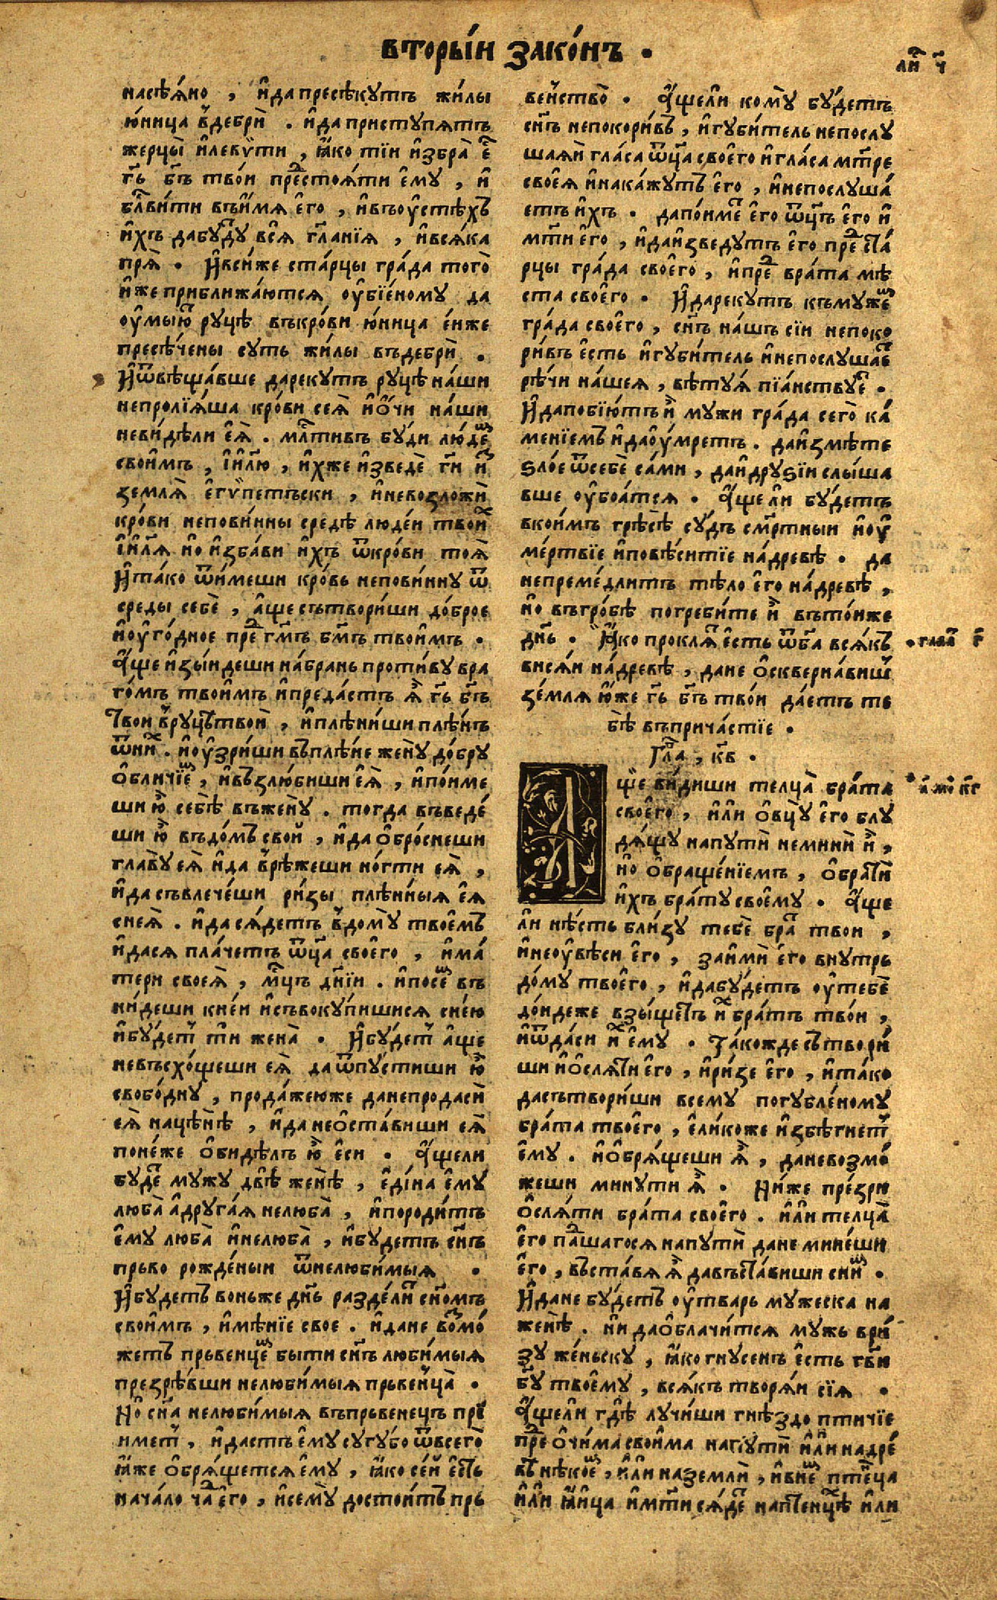 вторы́и зако́нъ .
ли҇ ч҃
насѣ́ѧно , и҆да пресѣкутъ жи́лы
ю҆ница в҆де́бри . и҆да приступѧтъ
жерцы̀ и҆леѵѵти , ꙗ҆ко тїи и҆збра̀ е҆҇
г҃ь б҃ъ тво́и пр҇естоѧти е҆му , и҆
бл҃ви́ти въи́мѧ е҆го , и҆въоу҆стѣ́хъ
и҆хъ дабу́ду всѧ̀ г҃ланїѧ , и҆всѧ́ка
прѧ̀ . И҆вси́же ста́рцы гра́да того̀
и҆же приближа́ются оу҆бїе́ному да
оу҆мы́ю҇ ру́цѣ въкро́ви ю҆ница е҆ѝже
пресѣ́чены суть жи́лы въде́бри .
И҆ѿвѣща́вше дарекутъ ру́цѣ на́ши
непролїѧ́ша кро́ви сеѧ̀ и҆ѻ҆чи на́ши
неви́дѣли е҆ѧ̀ . мл҇тивъ бу́ди лю́де҇
свои̑мъ , і҆и҃лю , и҆хже и҆зведѐ г҃и и҆҇
землѧ̀ е҆гѵпетъски , и҆невозложѝ
кро́ви непови́нны средѣ̀ люде́и твои҇
і҆и҃лѧ но и҆зба́ви и҆хъ ѿкро́ви тоѧ̀
И҆та́ко ѿи́меши кро́вь непови́нну ѿ
среды себѐ , а҆ще сътвори́ши до́брое
и҆оу҆го́дное пре҇ г҃мъ б҃мъ твои̑мъ .
А҆ще и҆зы́идеши на́брань проти́ву вра
го́мъ твои̑мъ и҆преда́стъ ѧ҆̀ г҃ь б҃ъ
тво́и в҆ру́цѣтвоѝ , и҆плѣни́ши плѣ́нъ
ѿни҇ . и҆оу҆зри́ши въплѣ́не жену̀ до́бру
ѻ҆бличїе҇ , и҆възлю́биши е҆ѧ̀ , и҆по́име
ши ю҆̀ себѣ̀ въжену̀ . тогда въведе́
ши ю҆̀ въдо́мъ свой , и҆да ѻ҆бро́снеши
главу еѧ̀ и҆да в҆рѣжеши но́гти еѧ̀ ,
и҆да съвлече́ши ри́зы плѣнныѧ еѧ
снеѧ̀ . и҆да сѧ́детъ в҆дому твое́мъ
и҆дасѧ пла́четъ ѿц҃а своего̀ , и҆ма́
тери своеѧ̀ , мц҇ъ дн҃їи . и҆посе҇ въ
ни́деши кне́и и҆съвокупи́шисѧ сне́ю
и҆бу́дет҇ ти жена̀ . И҆бу́дет҇ а҆ще
невъсхо́щеши еѧ̀ да ѿпу́стиши ю҆̀
свобо́дну , прода́жеюже данепродасѝ
еѧ̀ нацѣнѣ , и҆да нео҆ста́виши еѧ̀
поне́же ѻ҆бидѣлъ ю҆̀ еси . А҆щели
буде҇ му́жу двѣ̀ женѣ̀ , еди́на е҆му
люба̀ а҆друга́ѧ нелюба̀ , и҆породи́тъ
е҆му люба̀ и҆нелюба̀ , и҆бу́детъ сн҃ъ
прьво рожде́ныи ѿнелюби́мыѧ .
И҆бу́детъ во́ньже дн҃ь разде́лит҇ сн҃омъ
свои̑мъ , и҆мѣ́нїе свое . и҆дане во҇мо́
жетъ прьвенце҇ бы́ти сн҃ъ люби́мыѧ
презрѣ́вши нелюби́мыѧ прьвенца̀ .
Но̀ сн҃а нелюби́мыѧ въпрьвенецъ прї
имет҇ , и҆дастъ е҆му сугу́бо ѿвсего̀
ꙗ҆же ѻ҆брѧ́щетсѧ е҆му , ꙗ҆ко се́й е҆сть
нача́ло ча҇ е҆го , и҆сему̀ досто́итъ прь
ве́ньство . А҆щели кому̀ бу́детъ
сн҃ъ непокори́въ , и҆губи́тель непослу
шаѧи гла́са ѿц҃а своего̀ и҆гла́са мт҃ре
своеѧ̀ и҆нака́жутъ е҆го , и҆непослуша́
етъ и҆хъ . дапо́име҇ е҆го ѿц҃ъ е҆го и҆
мт҃и е҆го , и҆даи҆зведутъ е҆го пре҇ ста́
рцы гра́да своего̀ , и҆пре҇ врата̀ мѣ́
ста своего̀ . И҆дарекутъ къмуже҇
гра́да своего̀ , сн҃ъ на́шъ сїи непоко
ри́въ е҆сть и҆губи́тель и҆непослу́шае҇
рѣ́чи на́шеѧ , вѣтуѧ̀ пїа́нствуе҇ .
И҆дапобїю́тъ и҆̀ му́жи гра́да сего̀ ка́
менїемъ и҆даоу҆мретъ . даи҆змѣ́те
ѕло́е ѿсебѐ са́ми , даи҆друѕїи слы́ша
вше оу҆боѧ́тсѧ . А҆ще ли бу́детъ
вкоимъ грѣсѣ̀ су́дъ смр҃тныи и҆оу҆
ме́ртвїе и҆повѣ́ситїе на́древѣ . да
непреме́длитъ тѣ́ло е҆го на́древѣ ,
но въгро́бѣ погреби́те и҆̀ въто́иже
дн҃ь . Ꙗ҆ко проклѧ҇ е҆сть ѿб҃а всѧ́къ
висѧ́и на́древѣ , дане ѻ҆скверна́виш҇
земля̀ ю҆же г҃ь б҃ъ тво́и да́стъ те
бѣ̀ въприча́стїе .
глав҇ г҃
Гл҃а , к҃в .
а҃ мо҇ к҃г
А҆ще ви́диши телца̀ бра́та
своего̀ , и҆ли ѻ҆вцу̀ е҆го блу
дѧ́щу напутѝ неминѝ и҆̀ ,
но ѻ҆браще́нїемъ , ѻ҆брати҇
и҆хъ бра́ту своему̀ . А҆ще
ли нѣ́сть бли́зу тебѐ бра҇ тво́и ,
и҆неоу҆вѣ́си е҆го , заимѝ е҆го внутрь
до́му твоего̀ , и҆дабу́детъ оу҆тебѐ
до́идеже взы́щетъ и҆҇ бра́тъ тво́и ,
и҆ѿда́си и҆҇ е҆му . Та́кожде сътвори́
ши и҆ѻ҆слѧ́ти е҆го , и҆ри́зе е҆го , и҆та́ко
дасътвори́ши всему̀ погубле́ному
бра́та твоего̀ , ели́коже и҆збѣ́гнет҇
е҆му . и҆ѻ҆брѧ́щеши ѧ҆̀ , даневозмо́
жеши мину́ти ѧ҆̀ . Ни́же пре́зри
ѻ҆слѧ́ти бра́та своего̀ . и҆ли телца̀
е҆го па҇шагосѧ напутѝ дане мине́ши
е҆го , въста́вѧ ѧ҆̀ давъста́виши сни҇ .
И҆дане бу́детъ оу҆тварь му́жеска на
женѣ̀ . ни даѻ҆блачи́тсѧ му́жь ври́
зу же́ньску , ꙗ҆ко гну́сенъ е҆сть г҃ви
б҃у твоему̀ , всѧ́къ творѧ́и сїѧ .
А҆щели гдѣ̀ лучи́ши гнѣздо пти́чїе
пре҇ ѻ҆чи́ма свои́ма напутѝ и҆ли надре́
вѣ нѣкое҇ , и҆ли наземлѝ , и҆вне҇ пте҇нца
и҆ли ꙗ҆и́ца и҆мт҃и сѧ́де҇ наптенцѣ̀ и҆ли